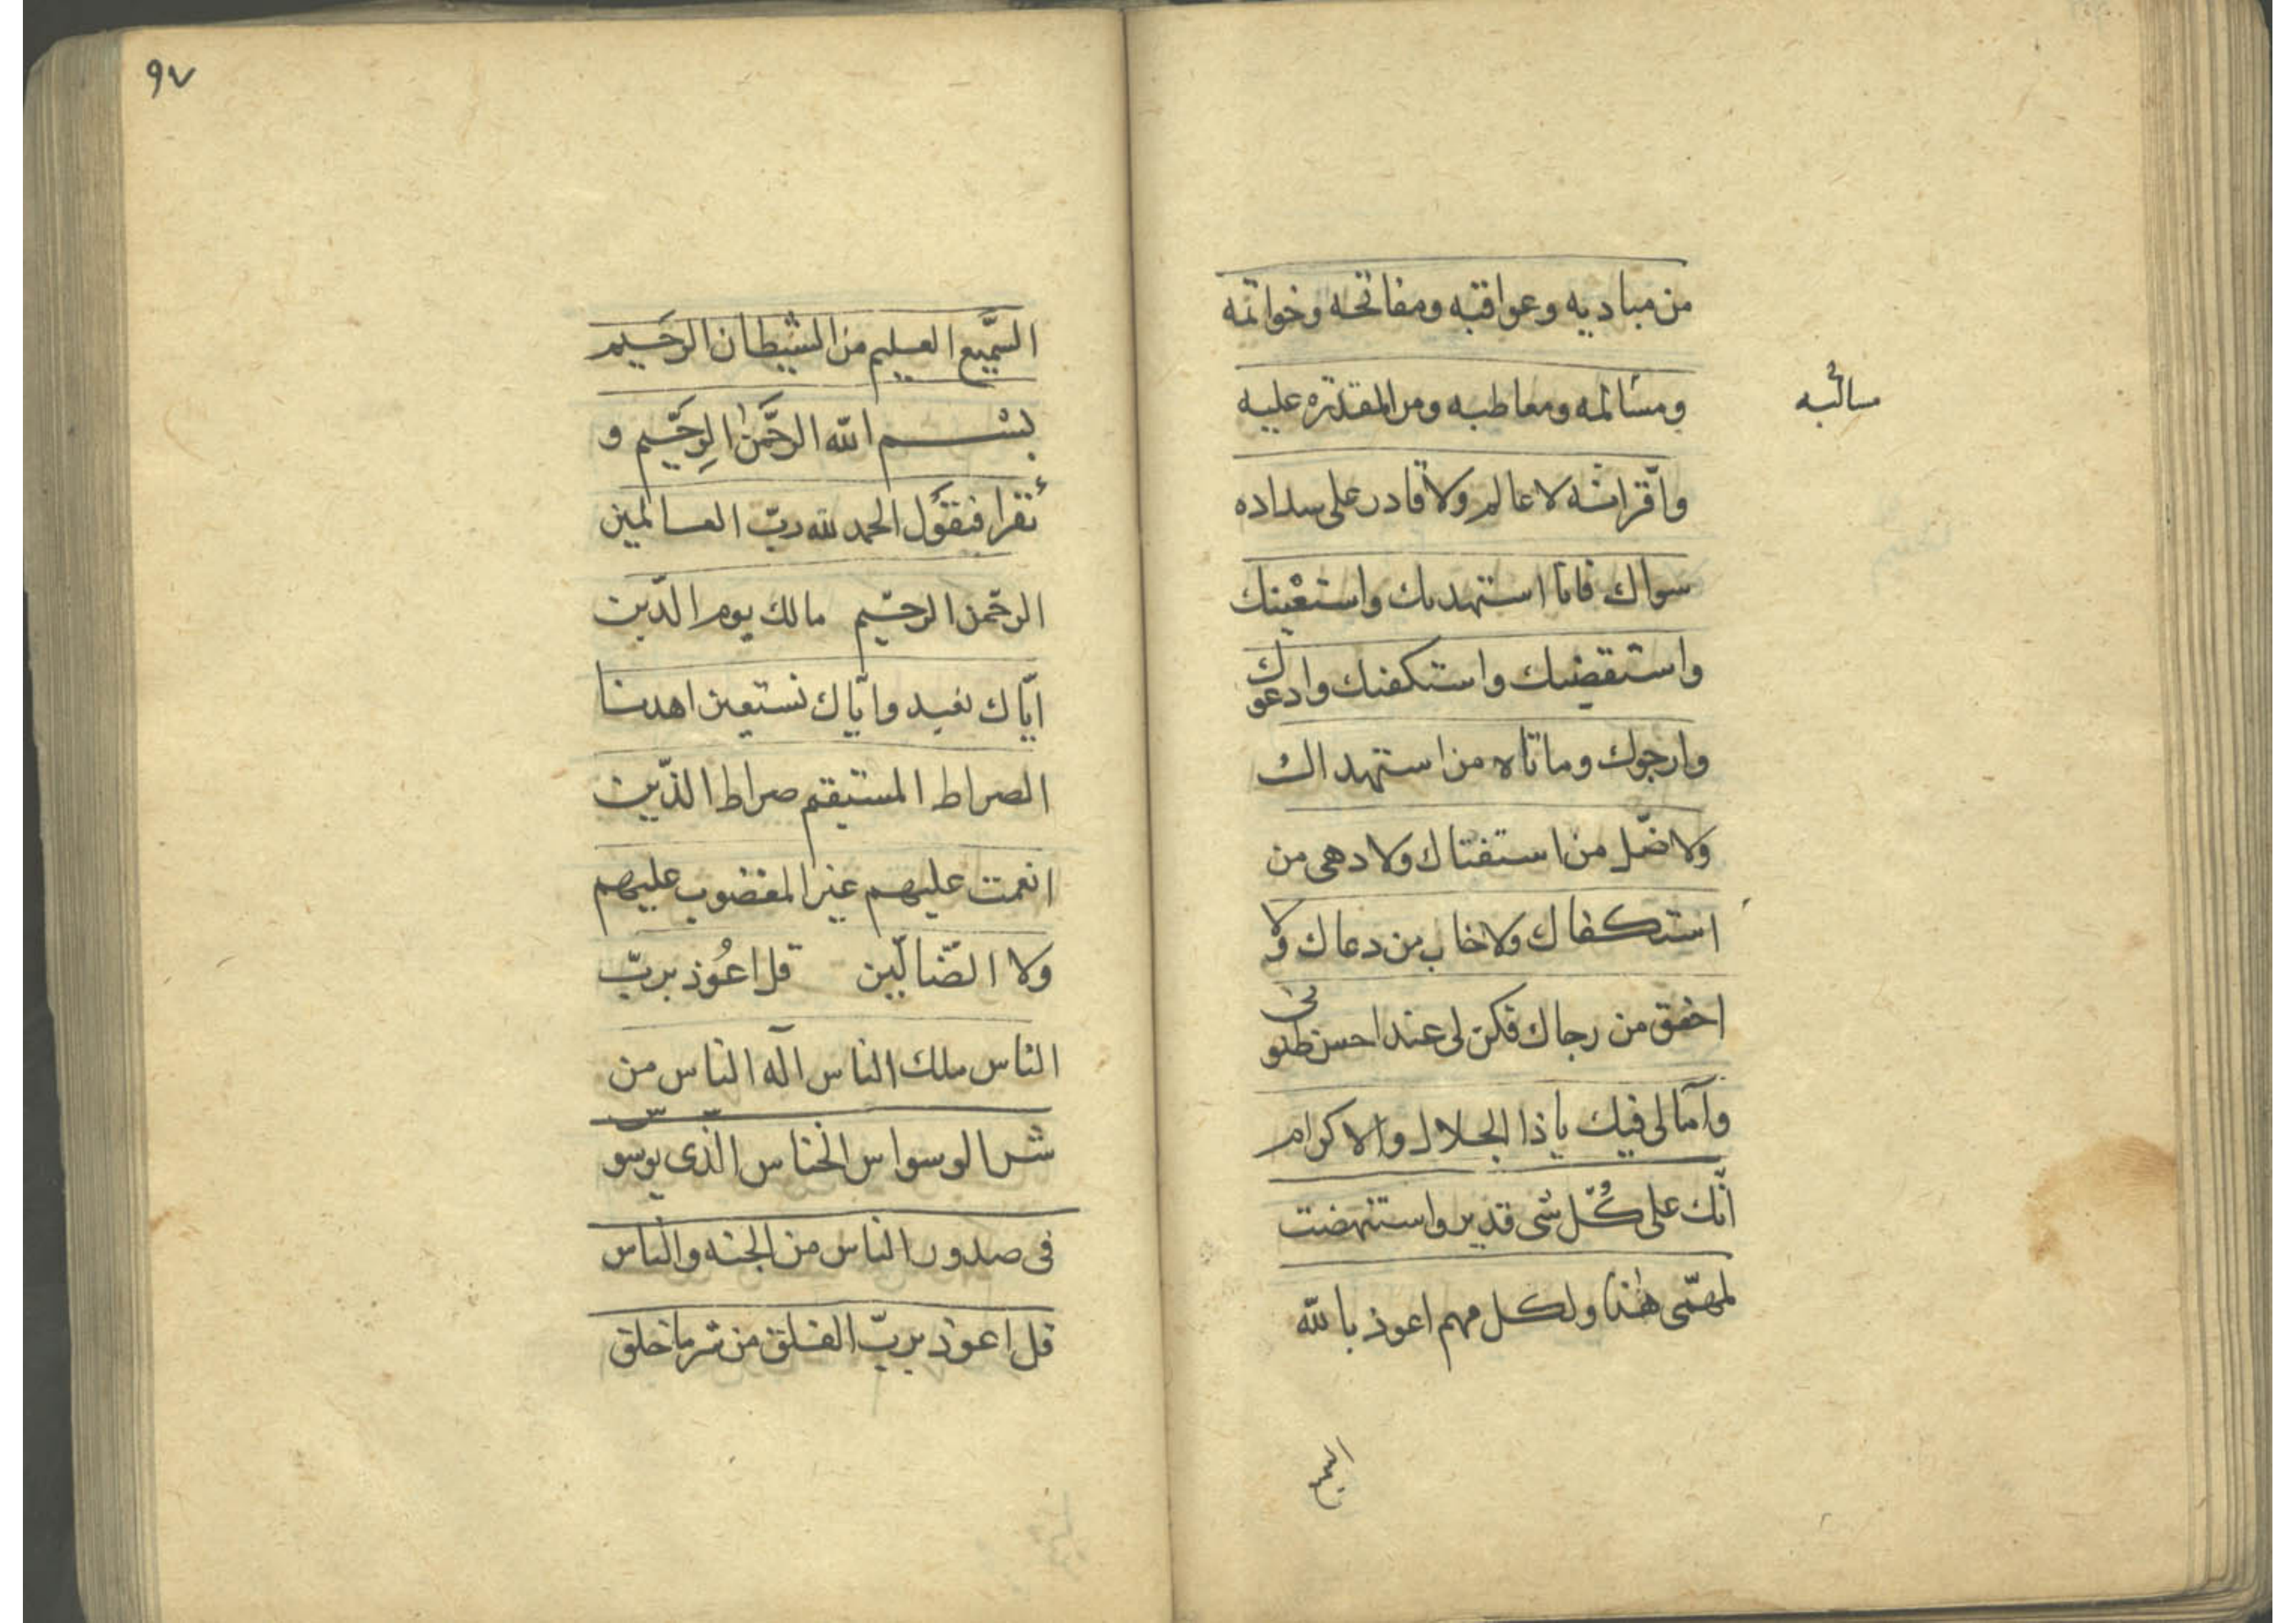 من مباديه وعواقبه ومفاتحه وخواتمه
ومسالمه ومعاطبه ومن المقدره عليه
مسالبه
واقرانه لا عالم ولا قادر على سداده
سواك فانا استهديك واستعينك
واستقضيك واستكفيك وادعوك
وارجوك وماتاه من استهداك
ولا ضلّ من استفتاك ولا دهى من
استكفاك ولا خاب من دعاك ولا
اخفق من رجاك فكن لى عند احسن ظنونى
وآمالى فيك ياذا الجلال والاكرام
انّك على كُلّ شى قدير واستنهضت
لمهمّى هٰذا ولكل مهم اعوذ بالله
السميع
٩٧
السَّميع العليم من الشيطان الرحيم
بسْم الله الرحَّمن الرحَّيم و
تقرا فتقول الحمد لله ربّ العالمين
الرحّمن الرحيّم مالك يوم الدّين
ايّاك نعبد وايّاك نستعين اهدنا
الصراط المستيقم صراط الذّين
انعمت عليهم غير المغضوب عليهم
ولا الضّالّين قل اعُوذ بربّ
الناس ملك الناس آله الناس من
شر الوسواس الخناس الذّى يوسوس
فى صدور الناس من الجنه والناس
قل اعوذ بربّ الفلق من شر ما خلق